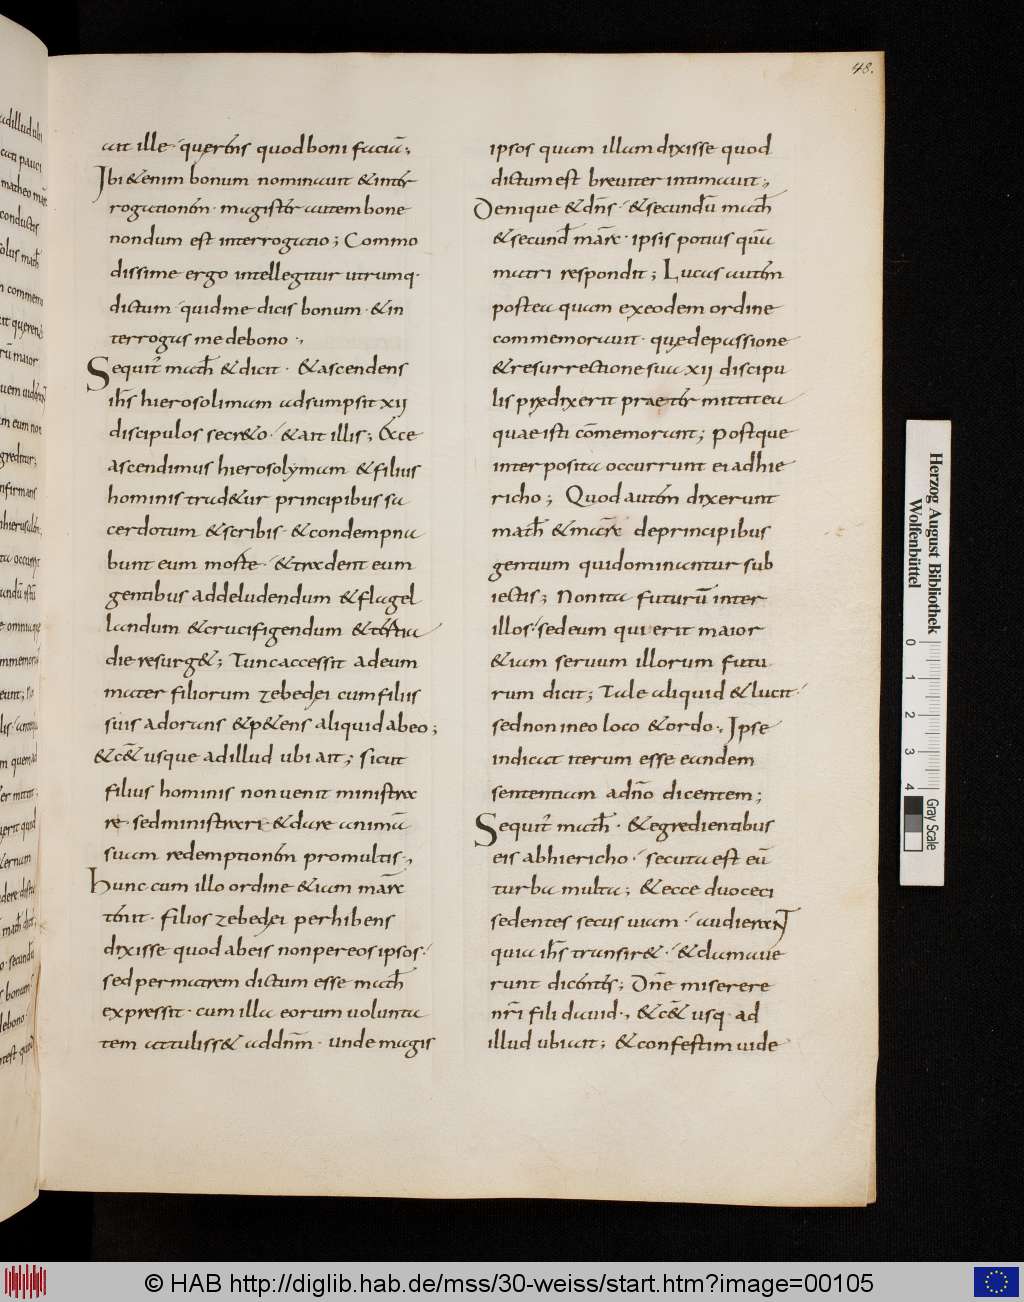 48.
ait ille · querens quod boni faciā;
Ibi & enim bonum nominauit & inter
rogationem · magister autem bone
nondum est interrogatio; Commo
dissime ergo intellegitur utrumq·
dictum · quid me dicis bonum · & in
terrogas me de bono ·,
Sequit̄ math̄ & dicit · & ascendens
ih̄s hierosolimam adsumpsit xii
discipulos secr&o · & ait illis; Ecce
ascendimus hierosolymam & filius
hominis trad&ur principibus sa
cerdotum & scribis · & condempna
bunt eum morte · & tradent eum
gentibus ad deludendum & flagel
landum & crucifigendum & tertia
die resurg&; Tunc accessit ad eum
mater filiorum zebedęi cum filiis
suis adorans & p&ens aliquid ab eo;
& c̄& usque ad illud ubi ait; sicut
filius hominis non uenit ministra
re · sed ministrari · & dare animā
suam redemptionem pro multis ·,
Hunc cum illo ordine & iam marc̄
tenit · filios zebedęi perhibens
dixisse quod ab eis non per eos ipsos ·
sed per matrem dictum esse math̄
expressit · cum illa eorum uolunta
tem attuliss& ad dn̄m · unde magis
ipsos quam illam dixisse quod
dictum est breuiter intimauit ·,
Denique & dn̄s · & secundū math̄
& secund̄ marc̄ · ipsis potius quā
matri respondit; Lucas autem
postea quam ex eodem ordine
commemorauit · quę de passione
& resurrectione sua xii discipu
lis prędixerit praeter mittit ea
quae isti cōmemorant; postque
inter posita occurrunt ei ad hie
richo; Quod autem dixerunt
math̄ & marc̄ de principibus
gentium qui dominantur sub
iectis; Non ita futurū inter
illos · sed eum qui erit maior
& iam seruum illorum futu
rum dicit; Tale aliquid & lucas ·
sed non in eo loco & ordo ·, Ipse
indicat iterum esse eandem
sententiam ad n̄o dicentem;
Sequit̄ math̄ · & egredientibus
eis ab hiericho · secuta est eū
turba multa; & ecce duo ceci
sedentes secus uiam · audierunt
quia ih̄s transir& · & clamaue
runt dicentes; Dn̄e miserere
nr̄i fili dauid ·, & c̄& usq· ad
illud ubi ait; & confestim uide
Herzog August Bibliothek
Wolfenbüttel
0 1 2 3 4
Gray Scale
© HAB http://diglib.hab.de/mss/30-weiss/start.htm?image=00105